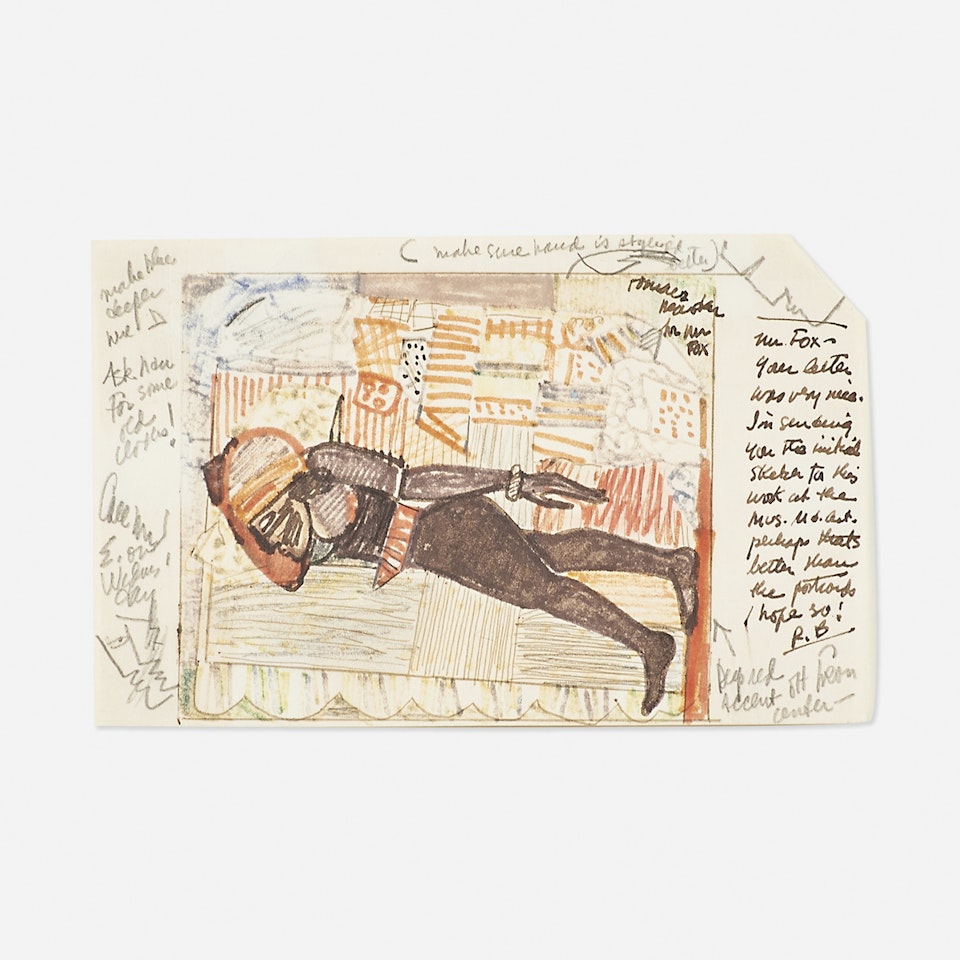 ( make sure hand is stylized better)
make blue
deeper
Ask Nan
For some
old
cloths!
Call
E.
Romare
Bearden
for Mr.
Fox
Mr. Fox –
Your letter
was very nice.
I'm sending
you the initial
sketch for this
work at the
Mus. Md. Art.
perhaps thats
better than
the postcards
I hope so!
R.B
deep red
Accent off from
center –